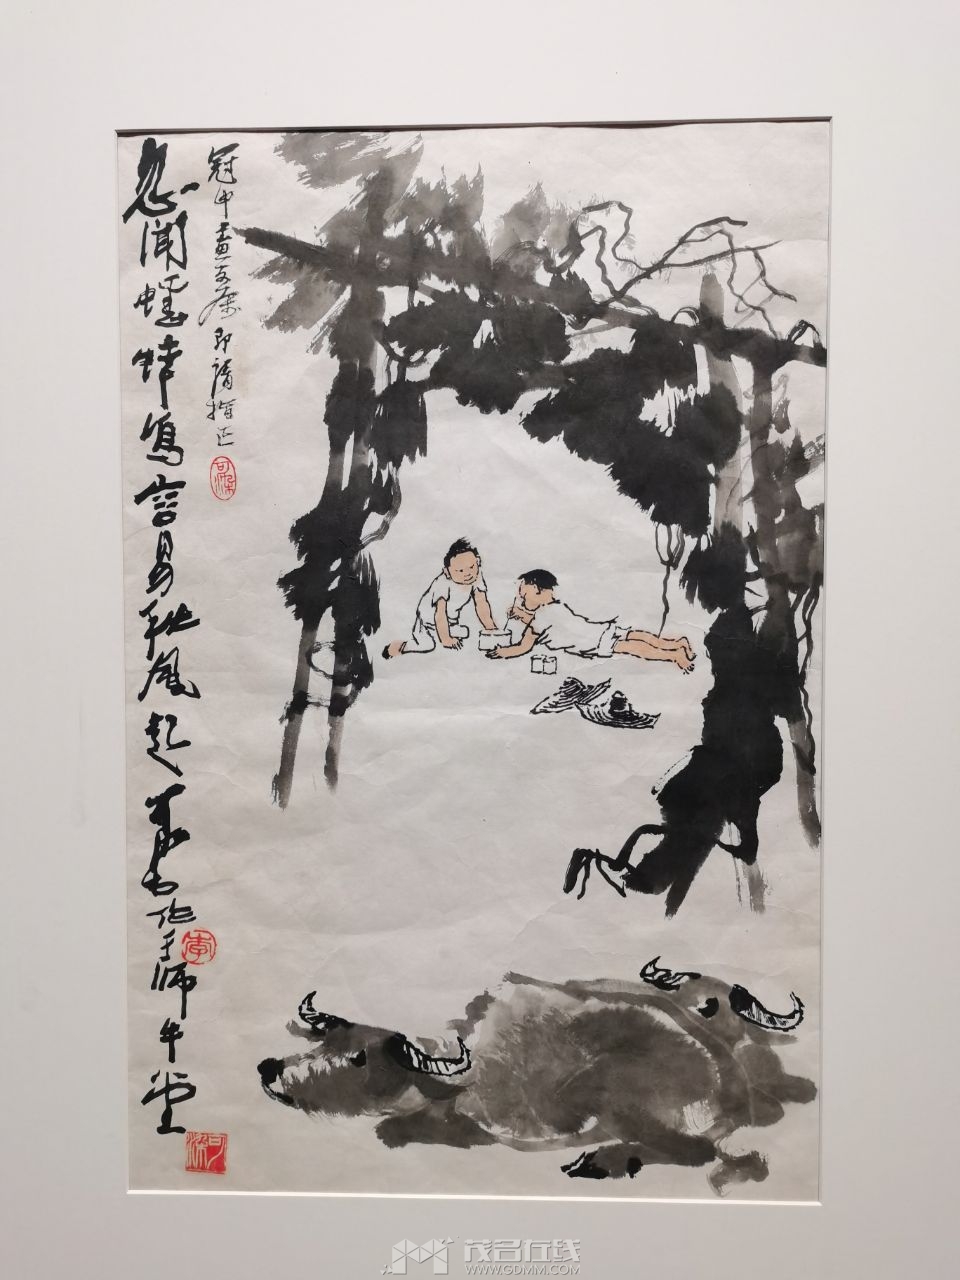 忽闻蟋蟀鸣容易秋风起 可染作于师牛堂
冠中画友属即请指正
可染
李
可染
茂名在线
WWW.GDMM.COM